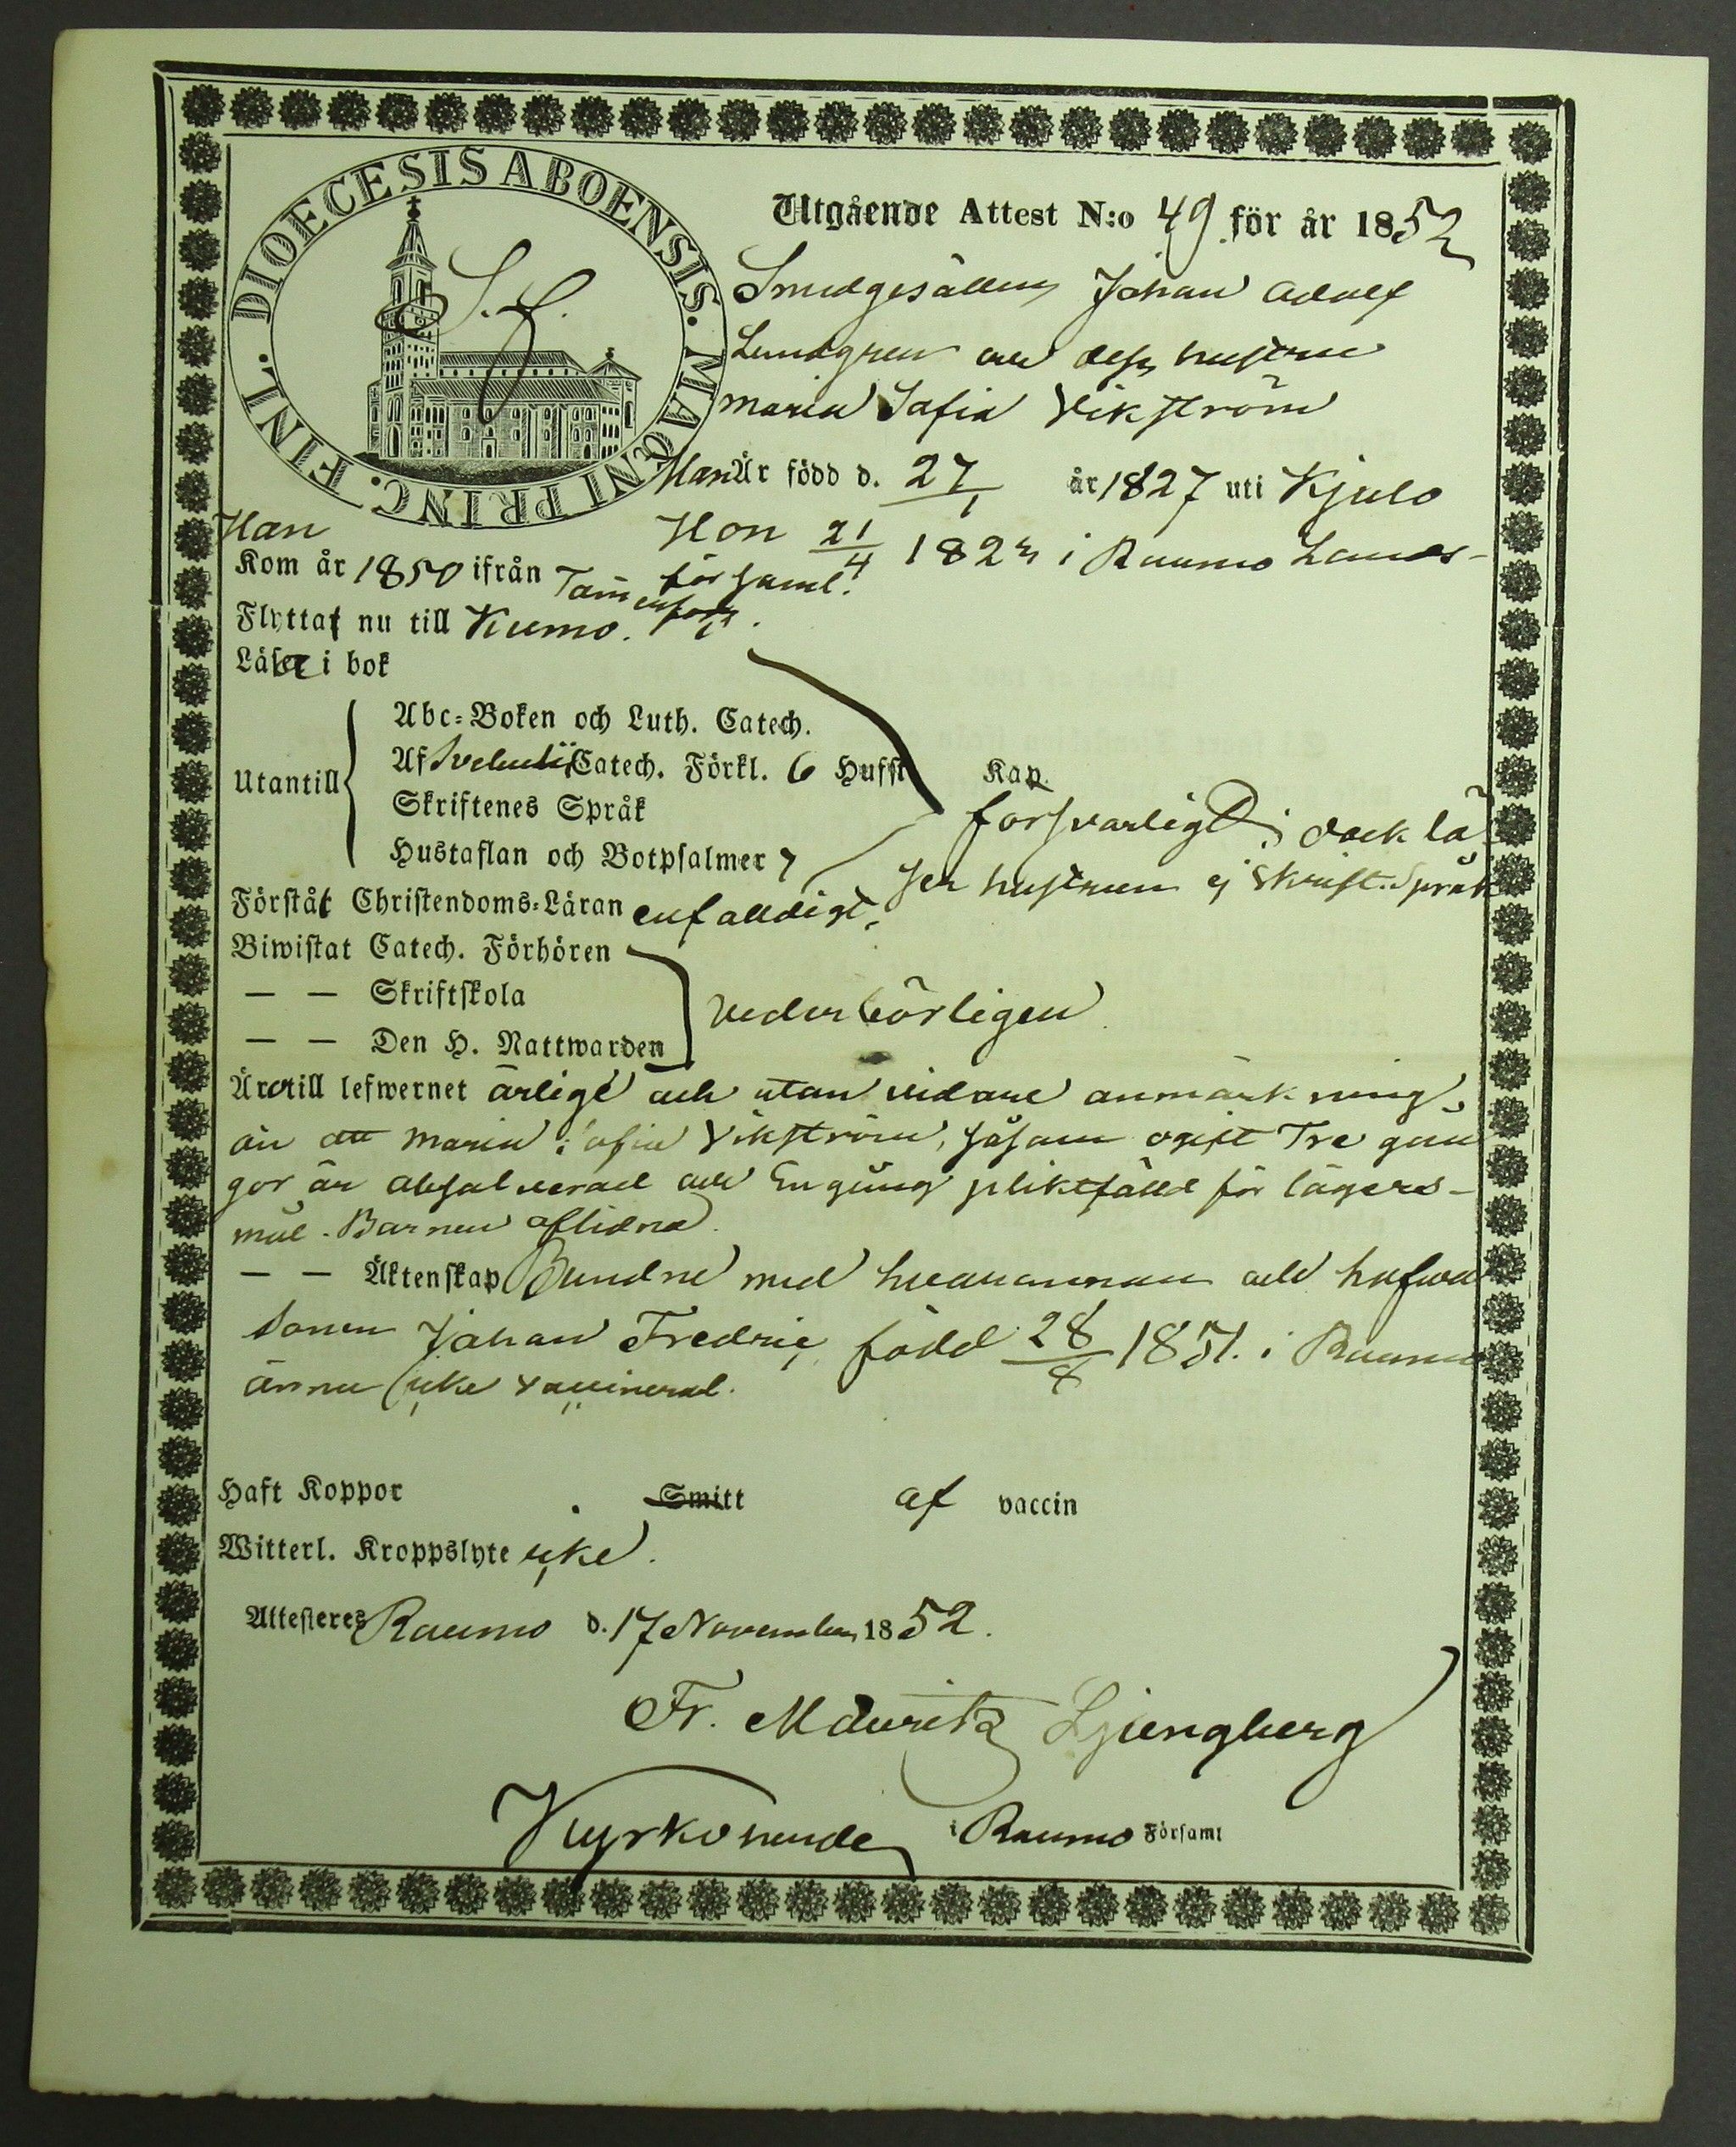 DIOECESIS ABOENSIS. MAGNI PRINC. FINL.
S. f.
Utgående Attest N:o 49 för år 1852
Smedgesällen Johan Adolf
Lundgren och dess hustru
Maria Sofia Vikström
Han Är född d. 27/1 år 1827 uti Kjulo
Hon 21/4 182 i Raumo Lands-
församl.
Han
Kom år 1850 ifrån
Flyttat nu till Kumo.
Läser i bok
Abc-Boken och Luth. Catech.
Utantill Af Svebelii Catech. Förkl. 6 Hufst Kap.
Skriftenes Språk
Hustaflan och Botpsalmer 7
försvarligt; dock lä-
ser hustrun ej Skrift. Språk
Förståt Christendoms-Läran enfalldigt,
Biwistat Catech. Förhören
— — Skriftskola
— — Den H. Nattwarden
vederbörligen
Äro till lefwernet ärlige och utan vidare anmärkning,
än att Maria Sofia Vikström, såsom ogift Tre gån
gor är absolverad och En gång pliktfälld för lägers-
mål. Barnen aflidna.
— — Äktenskap Bundne med hvarannan och hafwa
sonen Johan Fredric, född 28/8 1851. i Raumo
ännu icke vaccinerad.
Haft Koppor Smitt af vaccin
Witterl. Kroppslyte icke.
Attesteres Raumo d. 17 November 1852.
Fr. Mauritz Ljungberg
Kyrkoherde i Raumo Församl